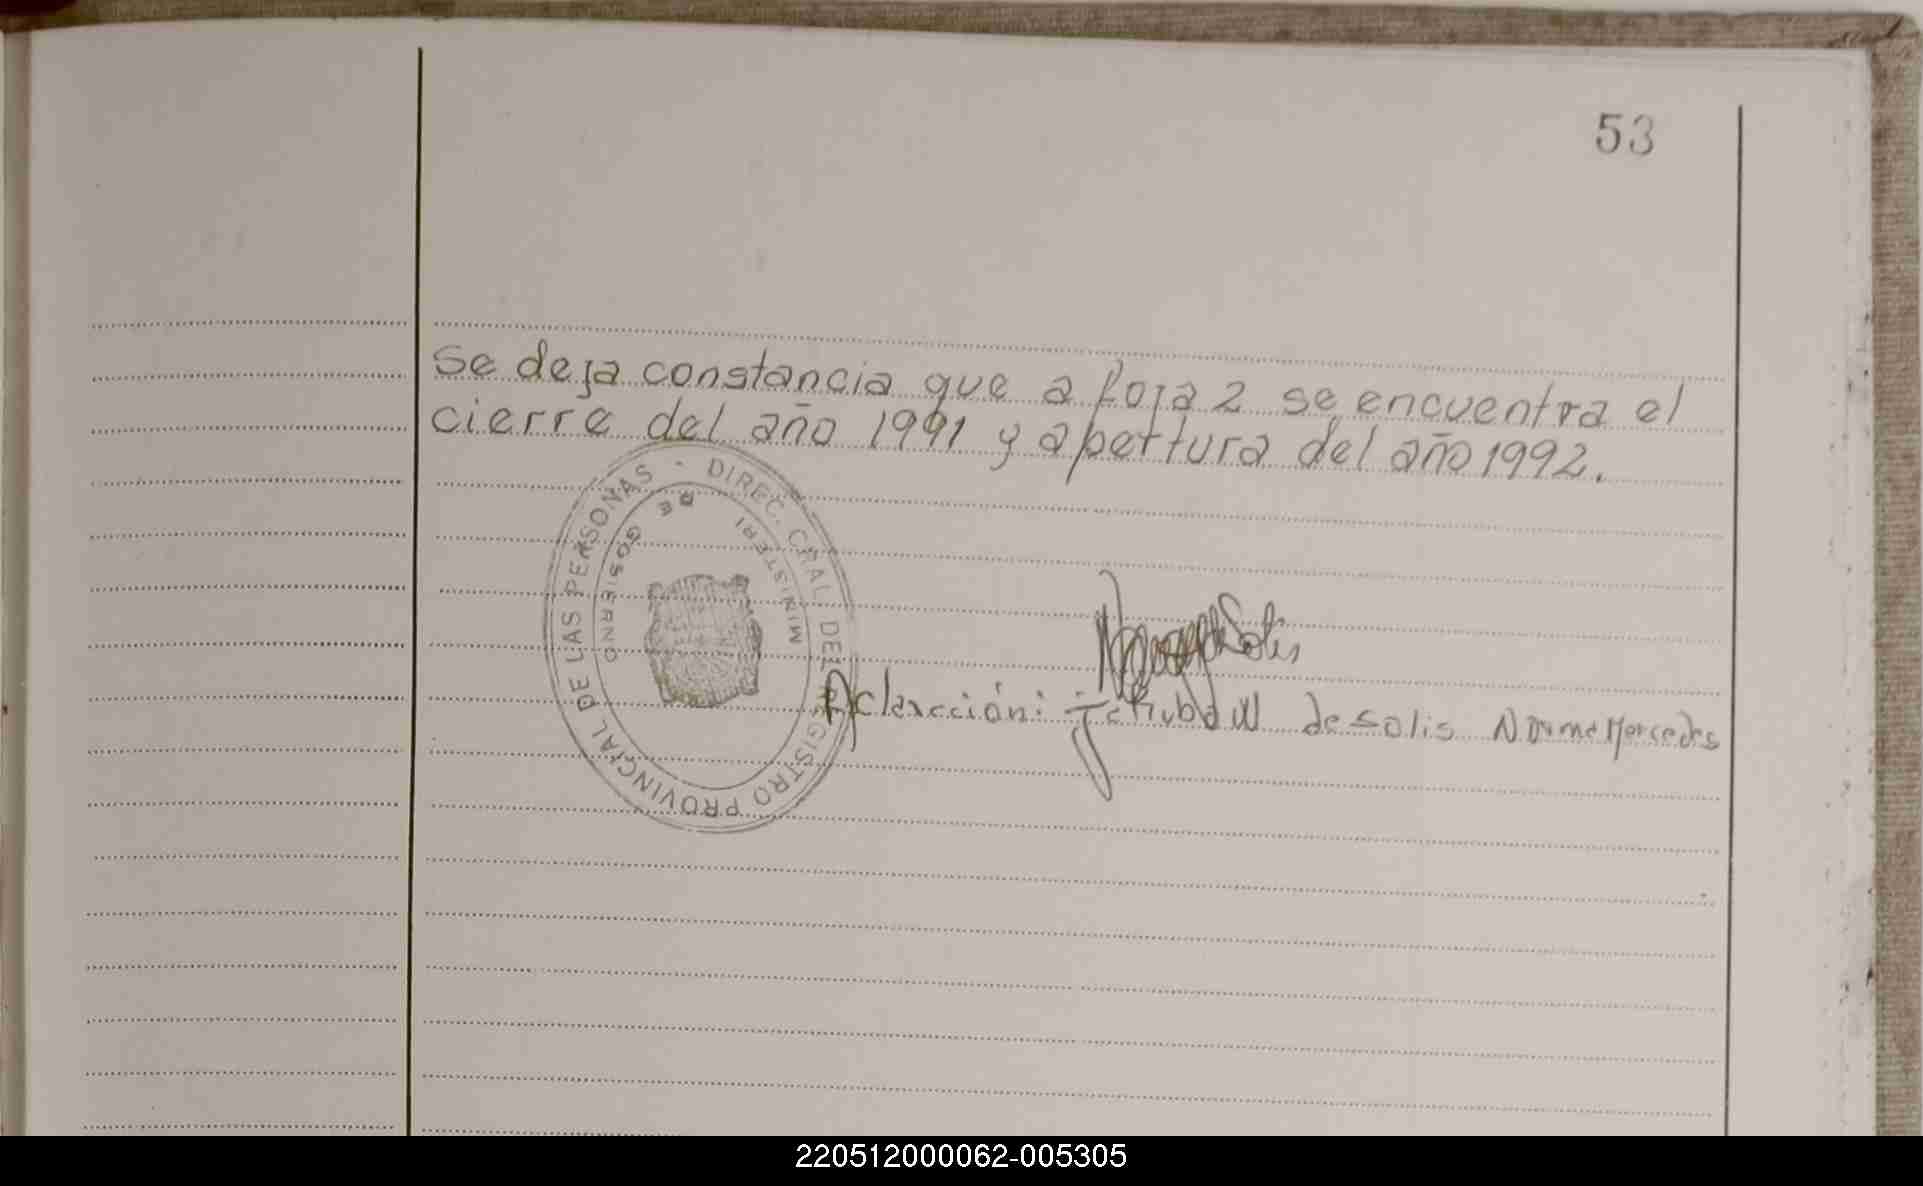 53
se deja constancia que a foja 2 se encuentra el
cierre del año 1991 y apertura del año 1992.
DIREC. GRAL. DEL REGISTRO PROVINCIAL DE LAS PERSONAS -
MINISTERI DE GOBIERNO
Solis
Aclarcción: de Solis Norma Mercedes
220512000062-005305